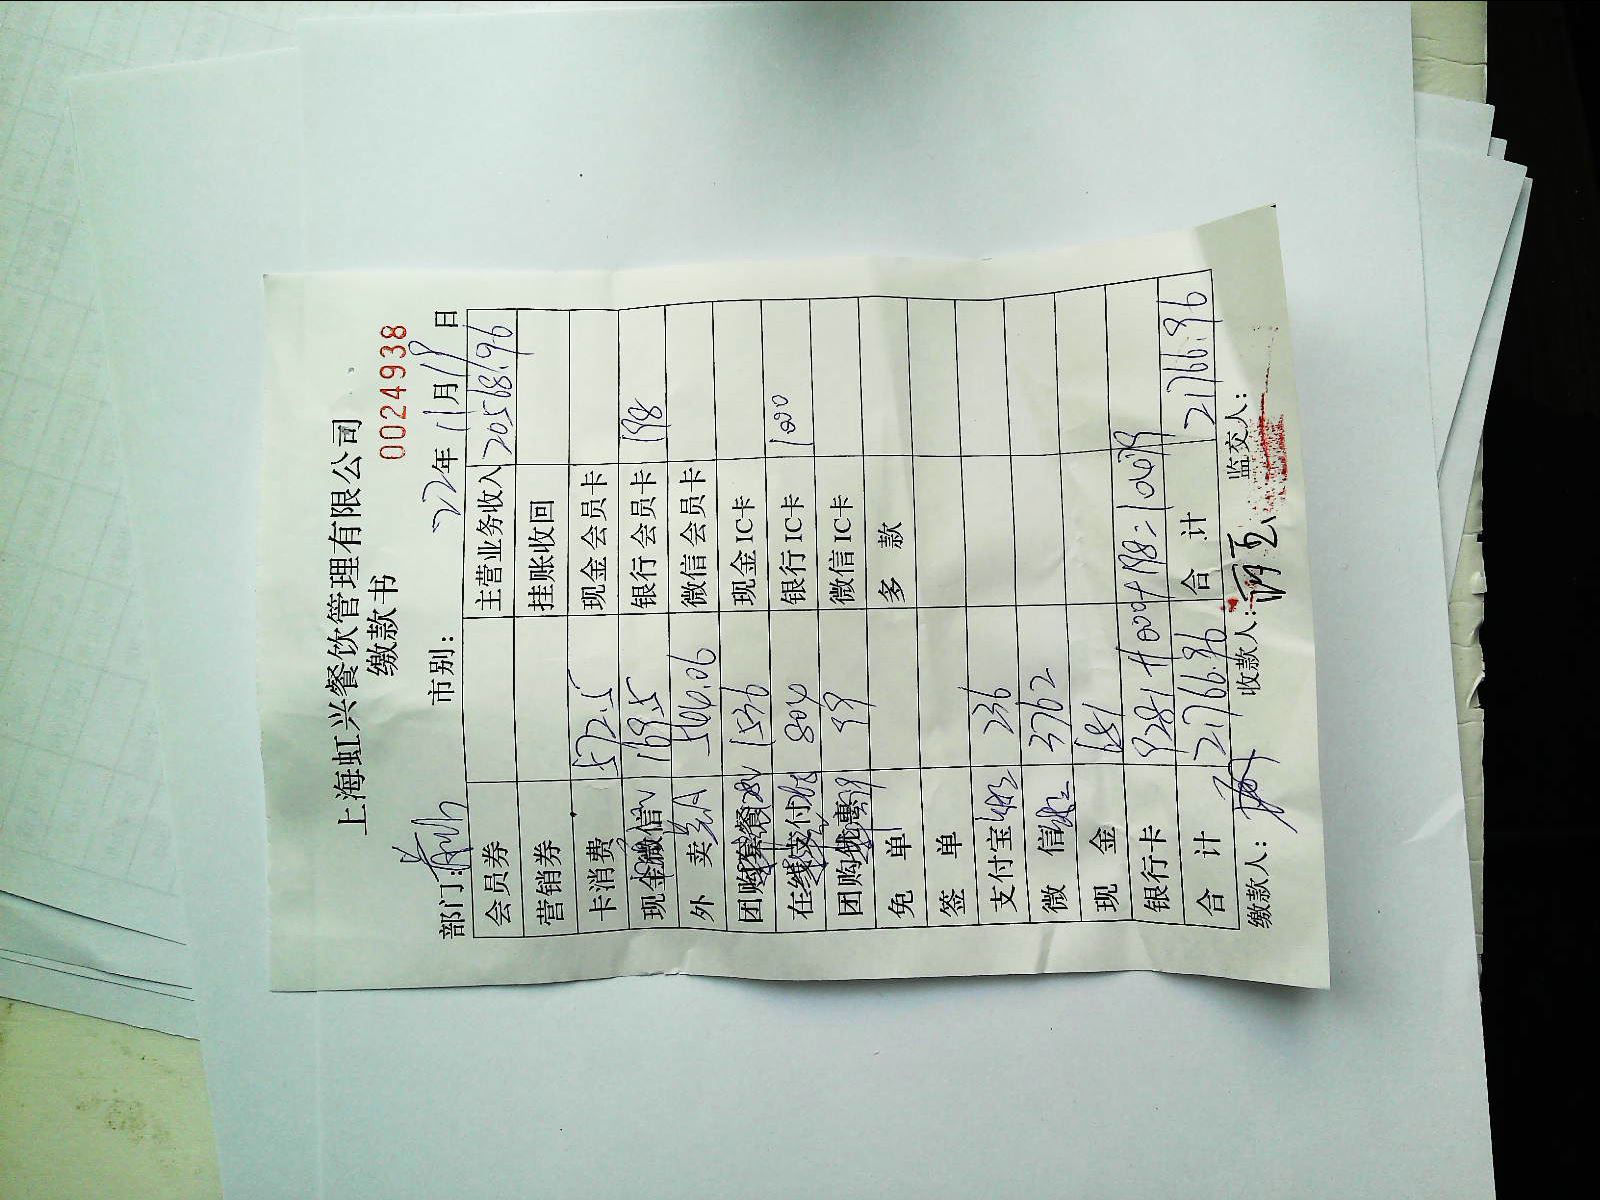 上海虹兴餐饮管理有限公司
缴款书
0024938
部门: 市别: 22年11月18日
会员券 主营业务收入 20568.96
营销券 挂账收回
卡消费 572.5 现金会员卡
现金微信 1695 银行会员卡 198
外卖 微信会员卡
团购套餐 1536 现金IC卡
在线支付 804 银行IC卡 1000
团购优惠 99 微信IC卡
免单 多款
签单
支付宝 236
微信 3762
现金 681
银行卡 9281+1000+198=
合计 21766.96 合计 21766.96
缴款人: 收款人: 监交人: